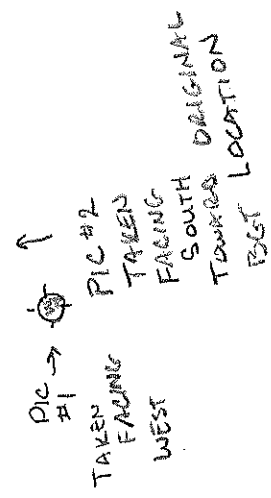 PIC →
#1
TAKEN
FACING
WEST
PIC #2
TAKEN
FACING
SOUTH
TOWARDS ORIGINAL
BGT LOCATION